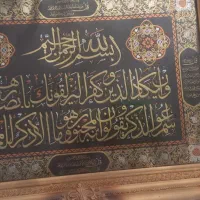 بسم الله الرحمن الرحيم
وإن يكاد الذين كفروا ليزلقونك بأبصارهم
لما سمعوا الذكر ويقولون إنه لمجنون وما هو إلا ذكر للعالمين